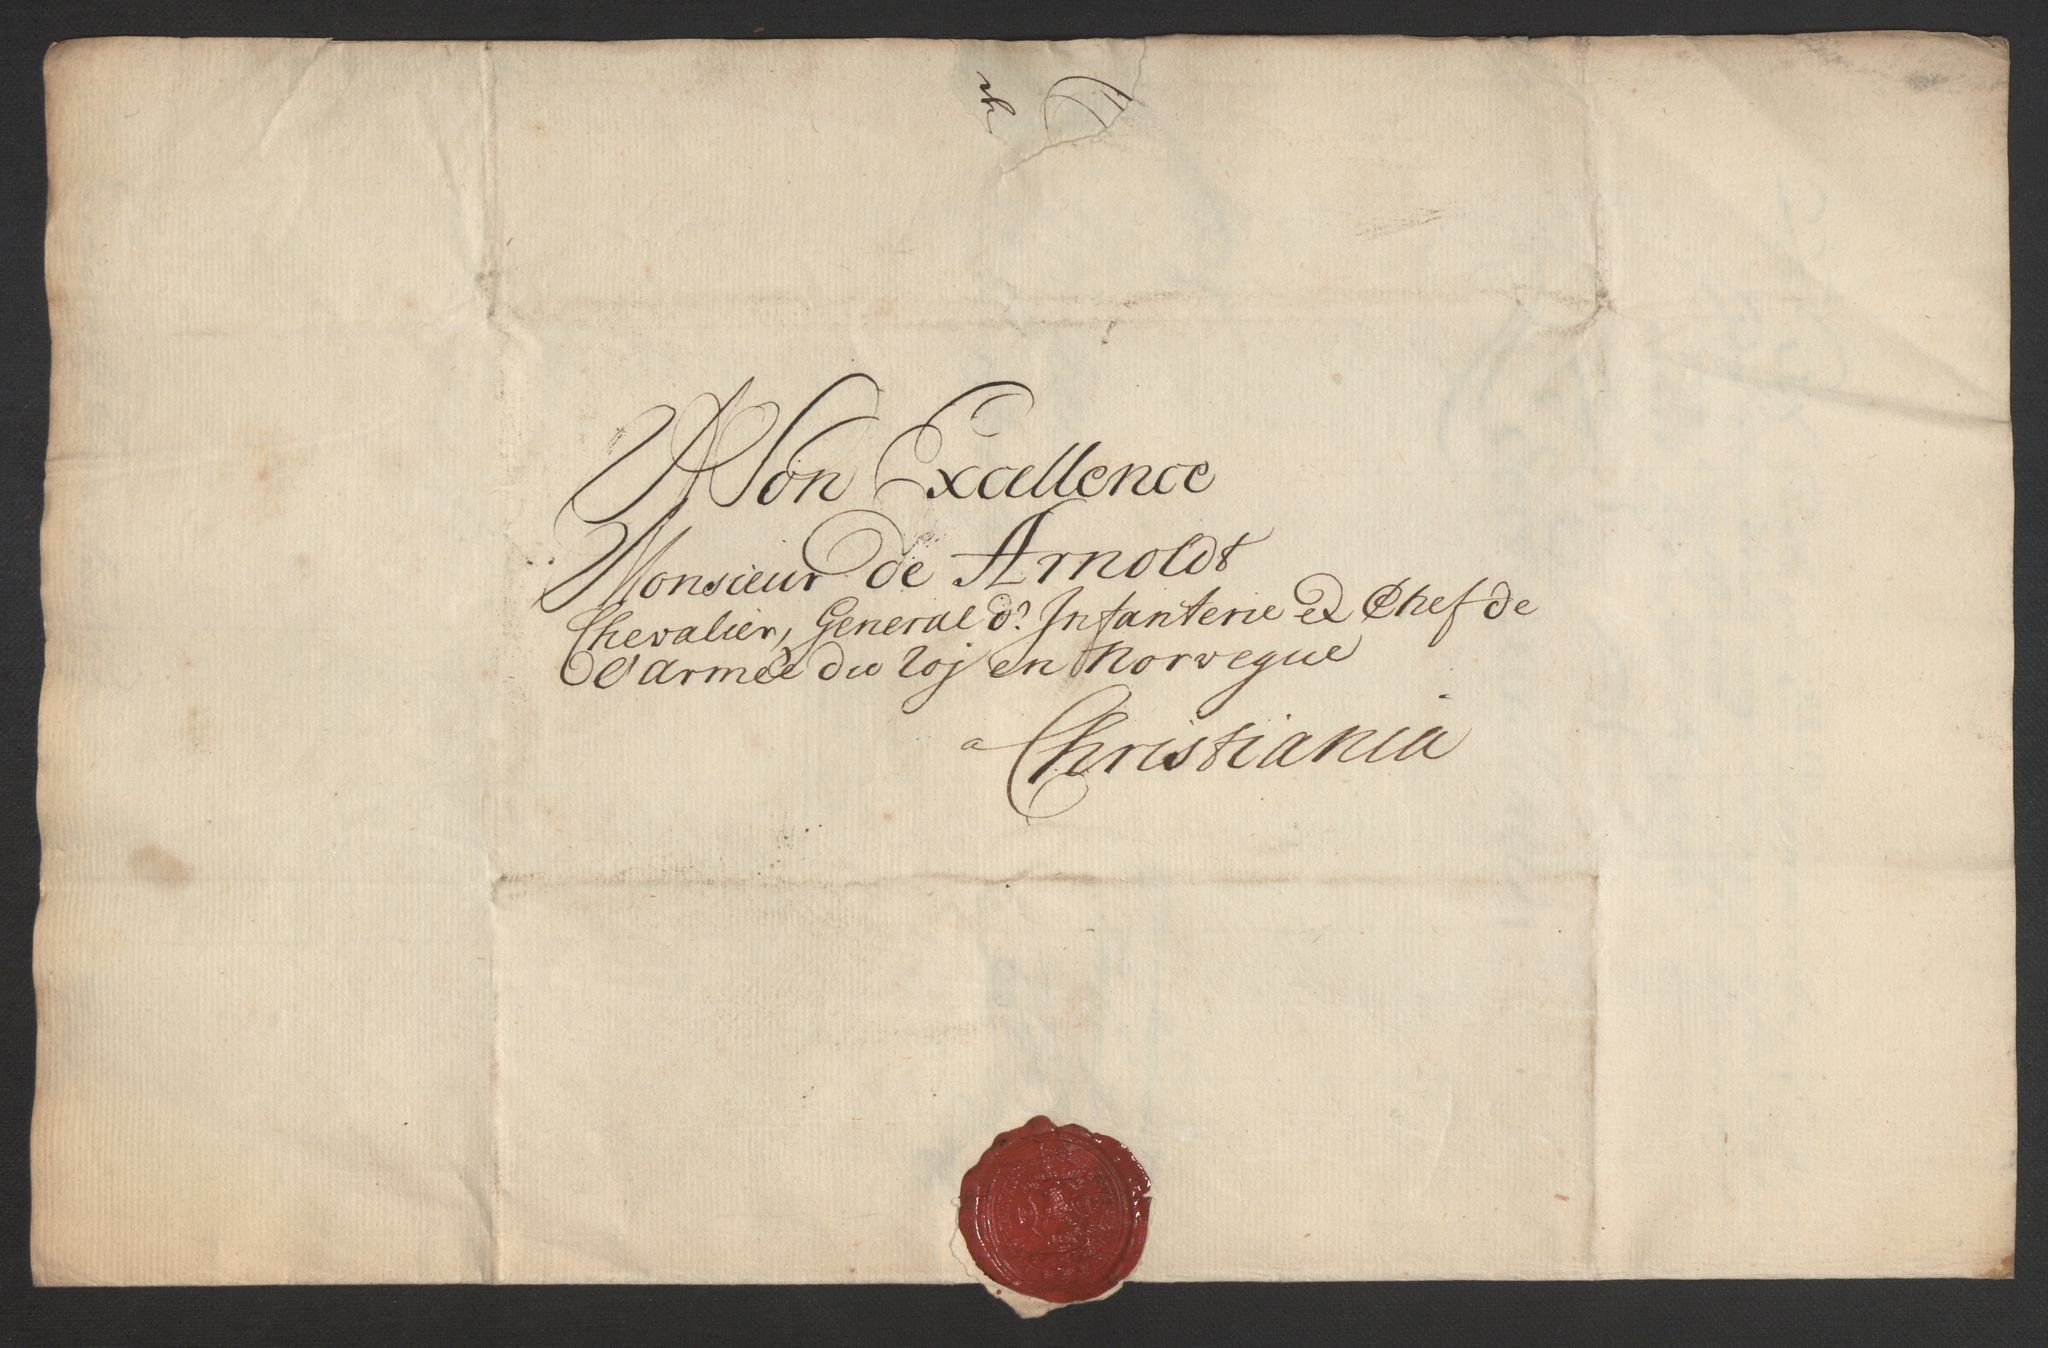 A Son Excellence
Monsieur de Arnoldt
Chevalier, General d'Infanterie et Chef de
l'armée du roj en Norvegue
a Christiania